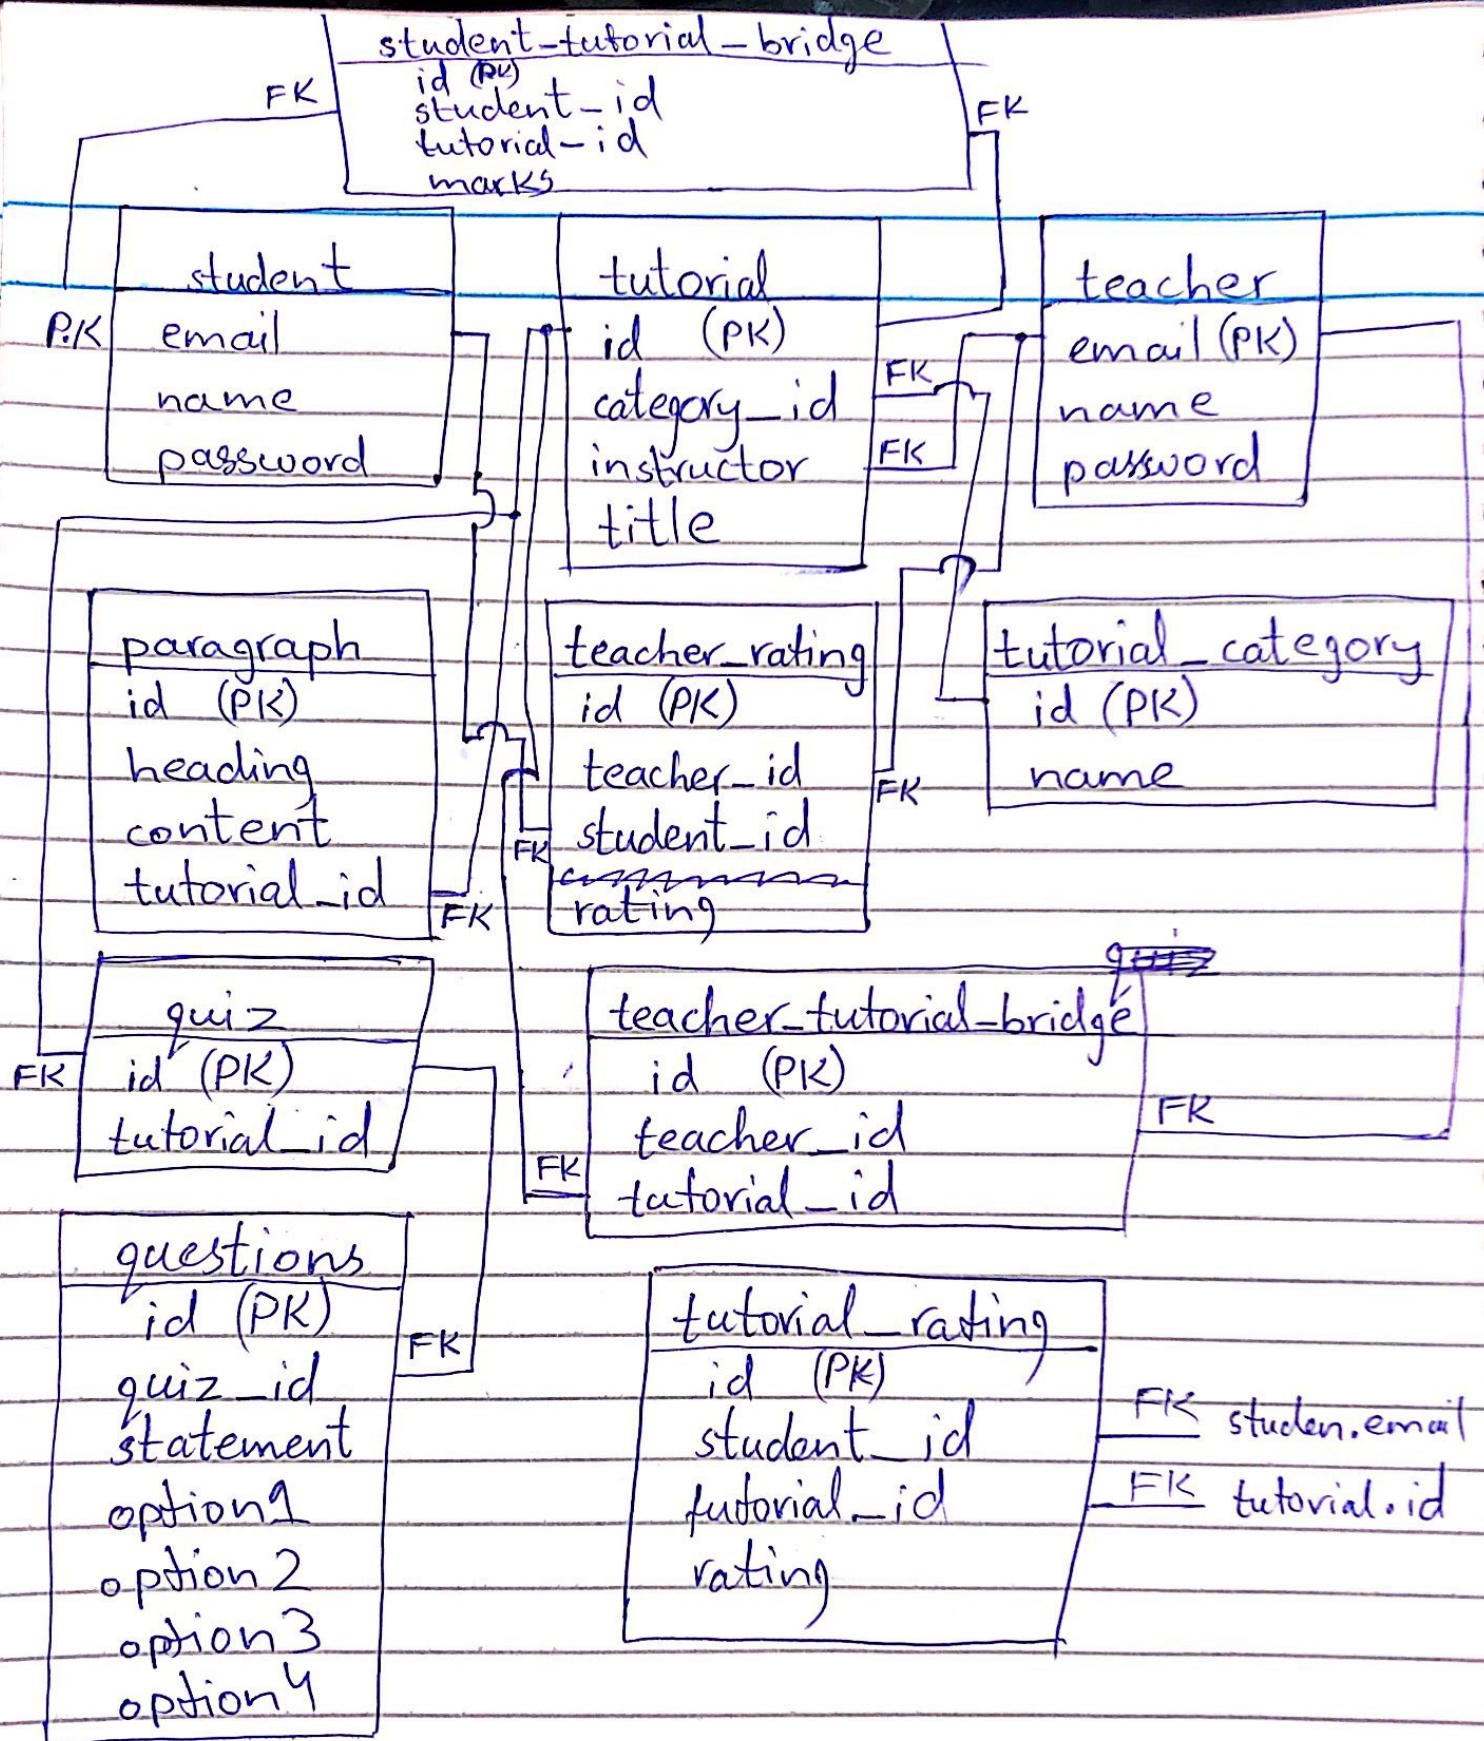 student-tutorial-bridge
id (PK)
student-id
tutorial-id
marks
FK
FK
student
P.K
email
name
password
tutorial
id (PK)
category_id
instructor
title
FK
FK
teacher
email (PK)
name
password
paragraph
id (PK)
heading
content
tutorial_id
FK
teacher_rating
id (PK)
teacher_id
student_id
rating
FK
FK
tutorial_category
id (PK)
name
quiz
id (PK)
tutorial_id
FK
teacher-tutorial-bridge
id (PK)
teacher_id
tutorial_id
FK
FK
questions
id (PK)
quiz_id
statement
option1
option2
option3
option4
FK
tutorial_rating
id (PK)
student_id
tutorial_id
rating
FK studen.email
FK tutorial.id